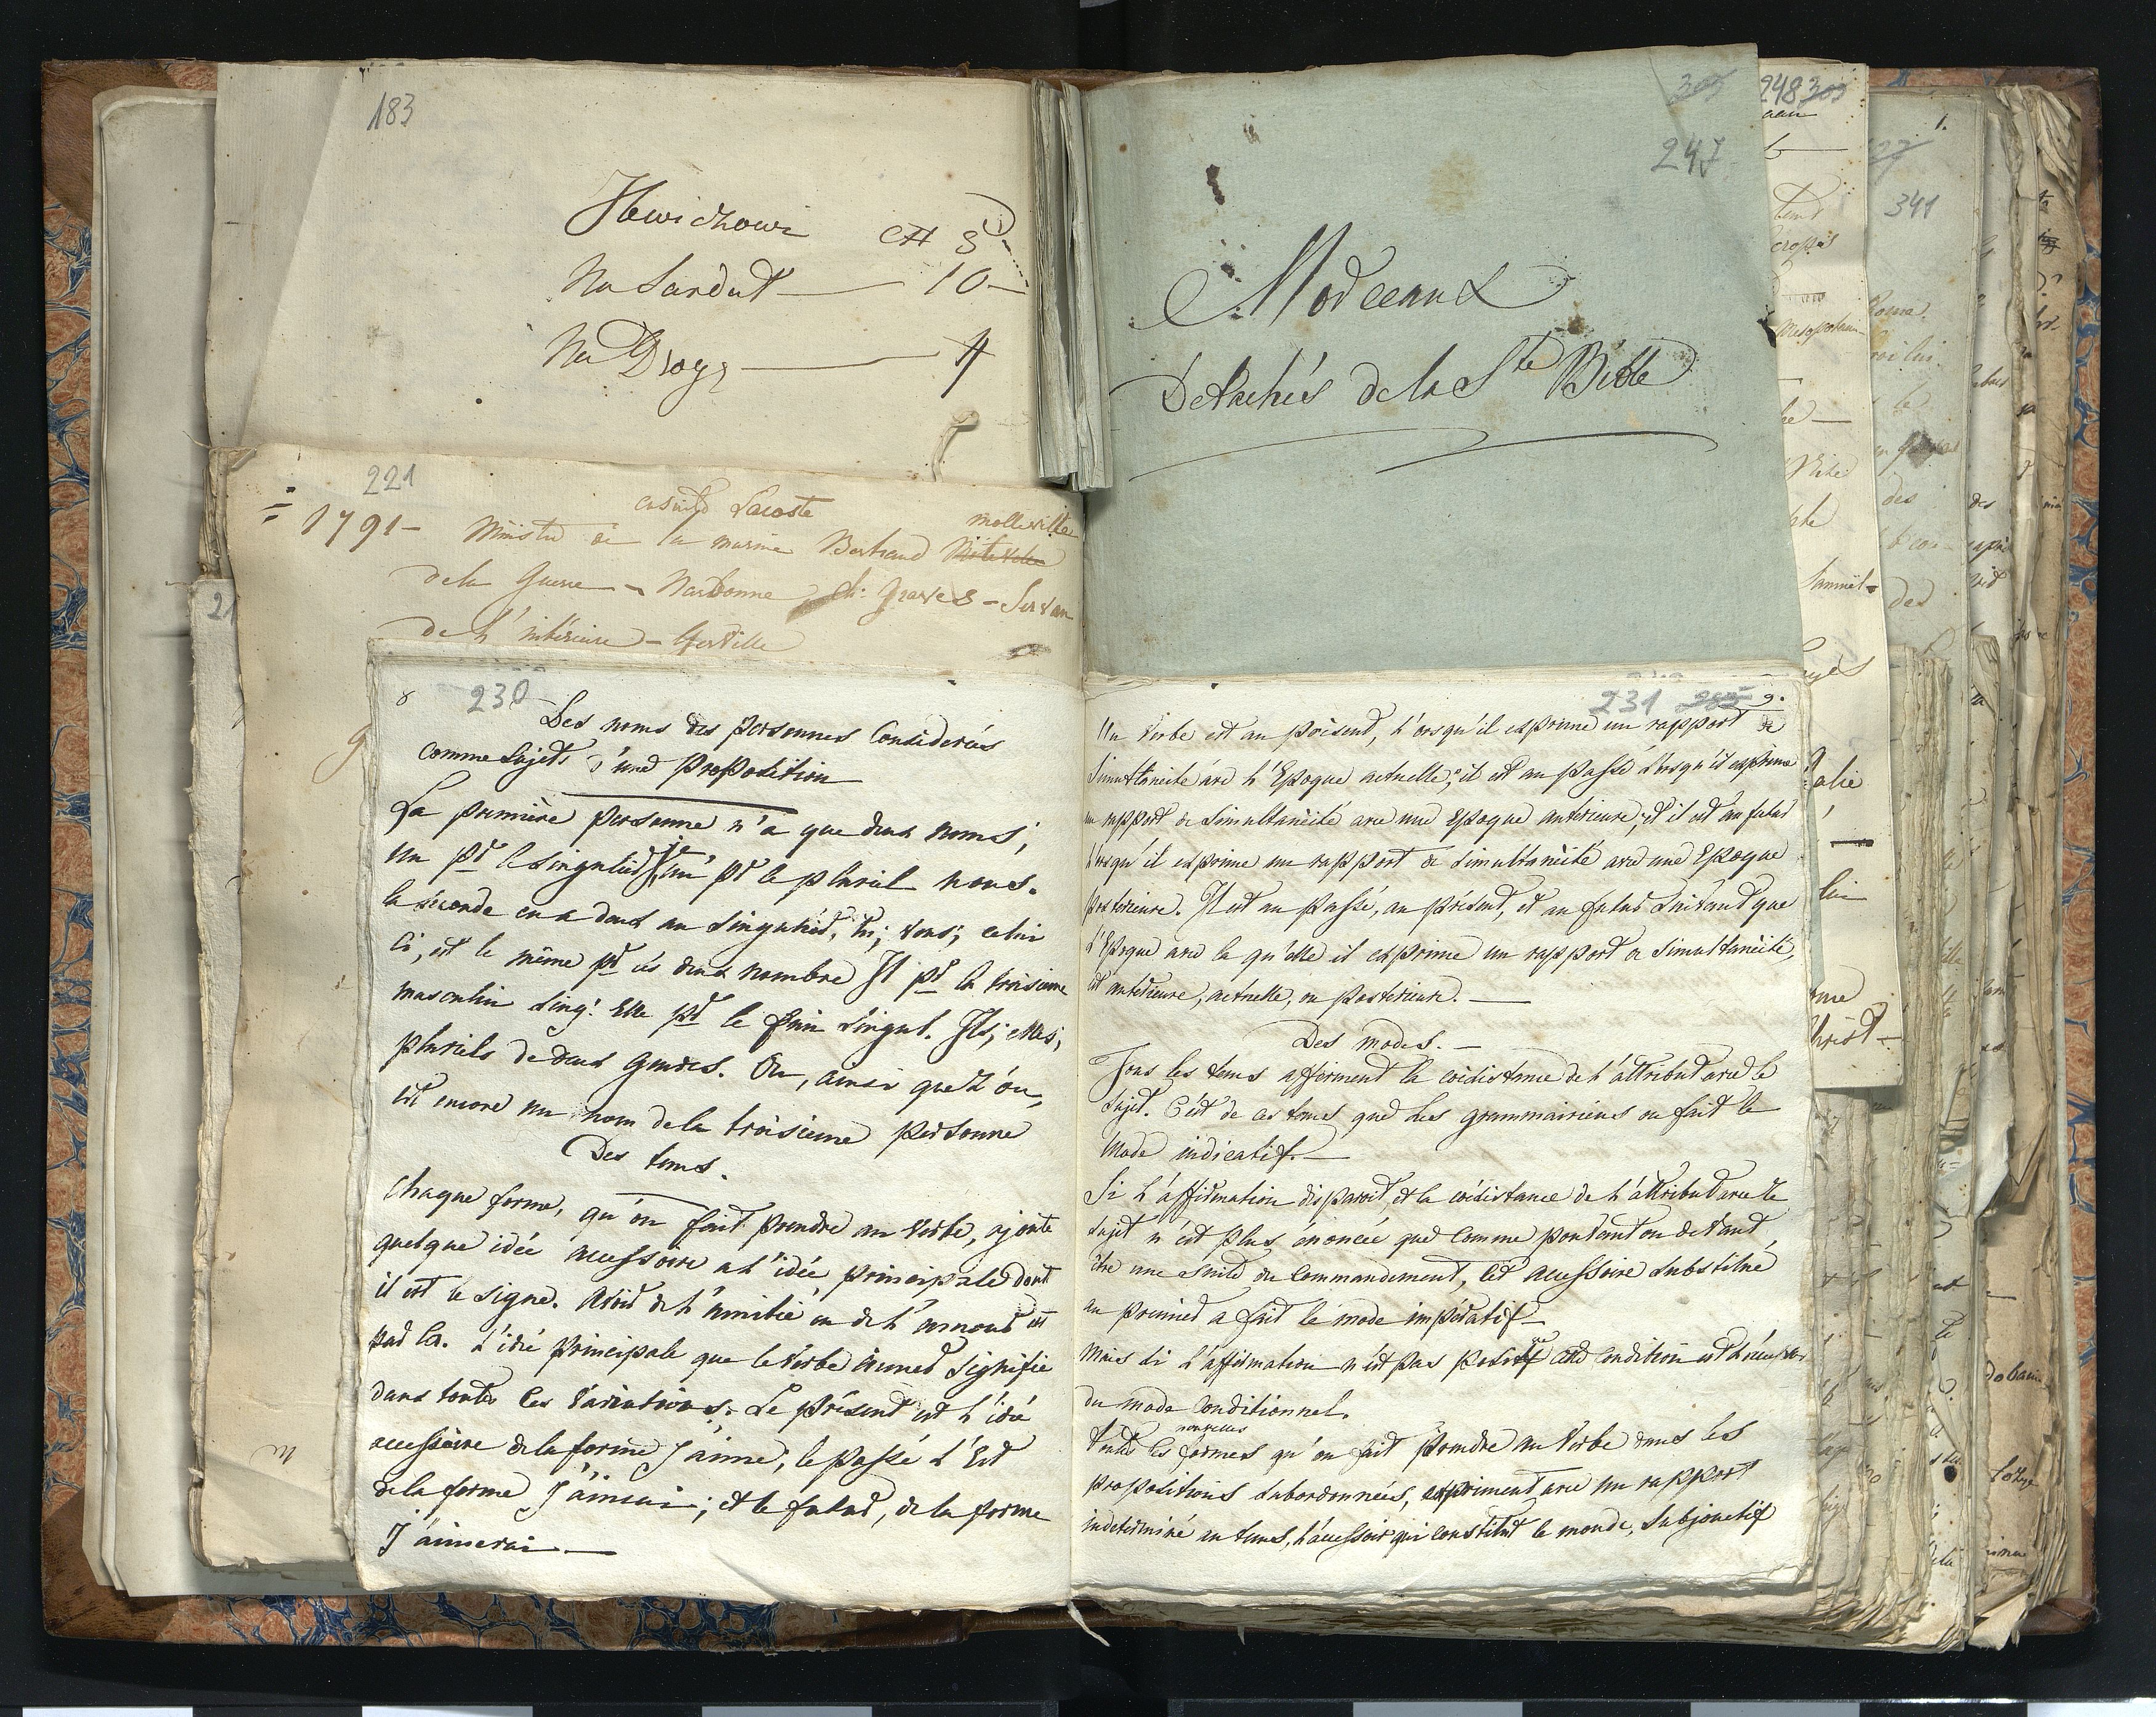 183
Na Sardut — 10 —
Na Drogę — 4
221
ensuite Lacoste
1791 — Ministre de la marine Bertrand molleville
de la Guerre — Narbonne, de Graves — Servan
de l'intérieure — Gerville
305
247
Morceaux
Detachés de la Ste Bible
248 305
341
8
230
Des noms des personnes Considerées
comme Sujets d'une Proposition
La première personne n'a que deux noms;
un pr le singulier, je un pr le pluriel nous.
la séconde en a deux au singulier, tu; vous; celui
ci, est le même pr les deux nombre Il pr la troisieme
masculin sing: Elle pr le fem singul. Ils; elles;
pluriels de deux genres. On, ainsi que l'on,
est encore un nom de la troisieme personne
Des tems.
Chaque forme, qu'on fait prendre au verbe, ajoute
quelque idée accessoire a l'idée principale dont
il est le signe. Avoir de l'amitié ou de l'amour est
par la. L'idée principale que le verbe aimer signifie
dans toutes les variations. Le présent est l'idée
accessoire de la forme J'aime; le passé l'Est
de la forme J'aimai; et le futur, de la forme
J'aimerai —
231 9.
Un verbe est au présent, l'orsqu'il exprime un rapport de
simultaneité avec l'Epoque actuelle; il est au passé l'orsqu'il exprime
un rapport de simultanéité avec une Epoque anterieure; et il est au futur
l'orsqu'il exprime un rapport de simultanéité avec une Epoque
posterieure. Il est au passé, au présent, et au futur suivant que
l'Epoque avec la qu'elle il exprime un rapport de simultanéité,
est antérieure, actuelle, ou posterieure. —
Des modes. —
Tous les tems afferment la coéxistence de l'attribut avec le
sujet. C'est de ces tems que les grammairiens on fait le
Mode indicatif. —
Si l'affirmation disparoit, et la coéxistance de l'attribut avec le
sujet n'est plus énoncée que comme pouvant ou devant,
être une suite du commandement, cet accessoire substitué
au premier a fait le mode impératif —
Mais si l'affirmation n'est pas positive
du mode Conditionnel.
nouvelles
toutes les formes qu'on fait prendre au verbe dans les
propositions subordonnées, expriment avec un rapport
indeterminé au tems, l'accessoire qui constitue le monde, subjonctif